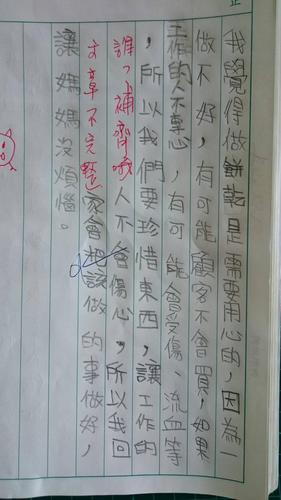 我覺得做餅乾是需要用心的,因為一
做不好,有可能顧客不會買,如果
工作的人不專心,有可能會受傷、流血等
,所以我們要珍惜東西,讓工作的
補齊哦人不會傷心,所以我回
文章不完整家會把該做的事做好,
讓媽媽沒煩惱。